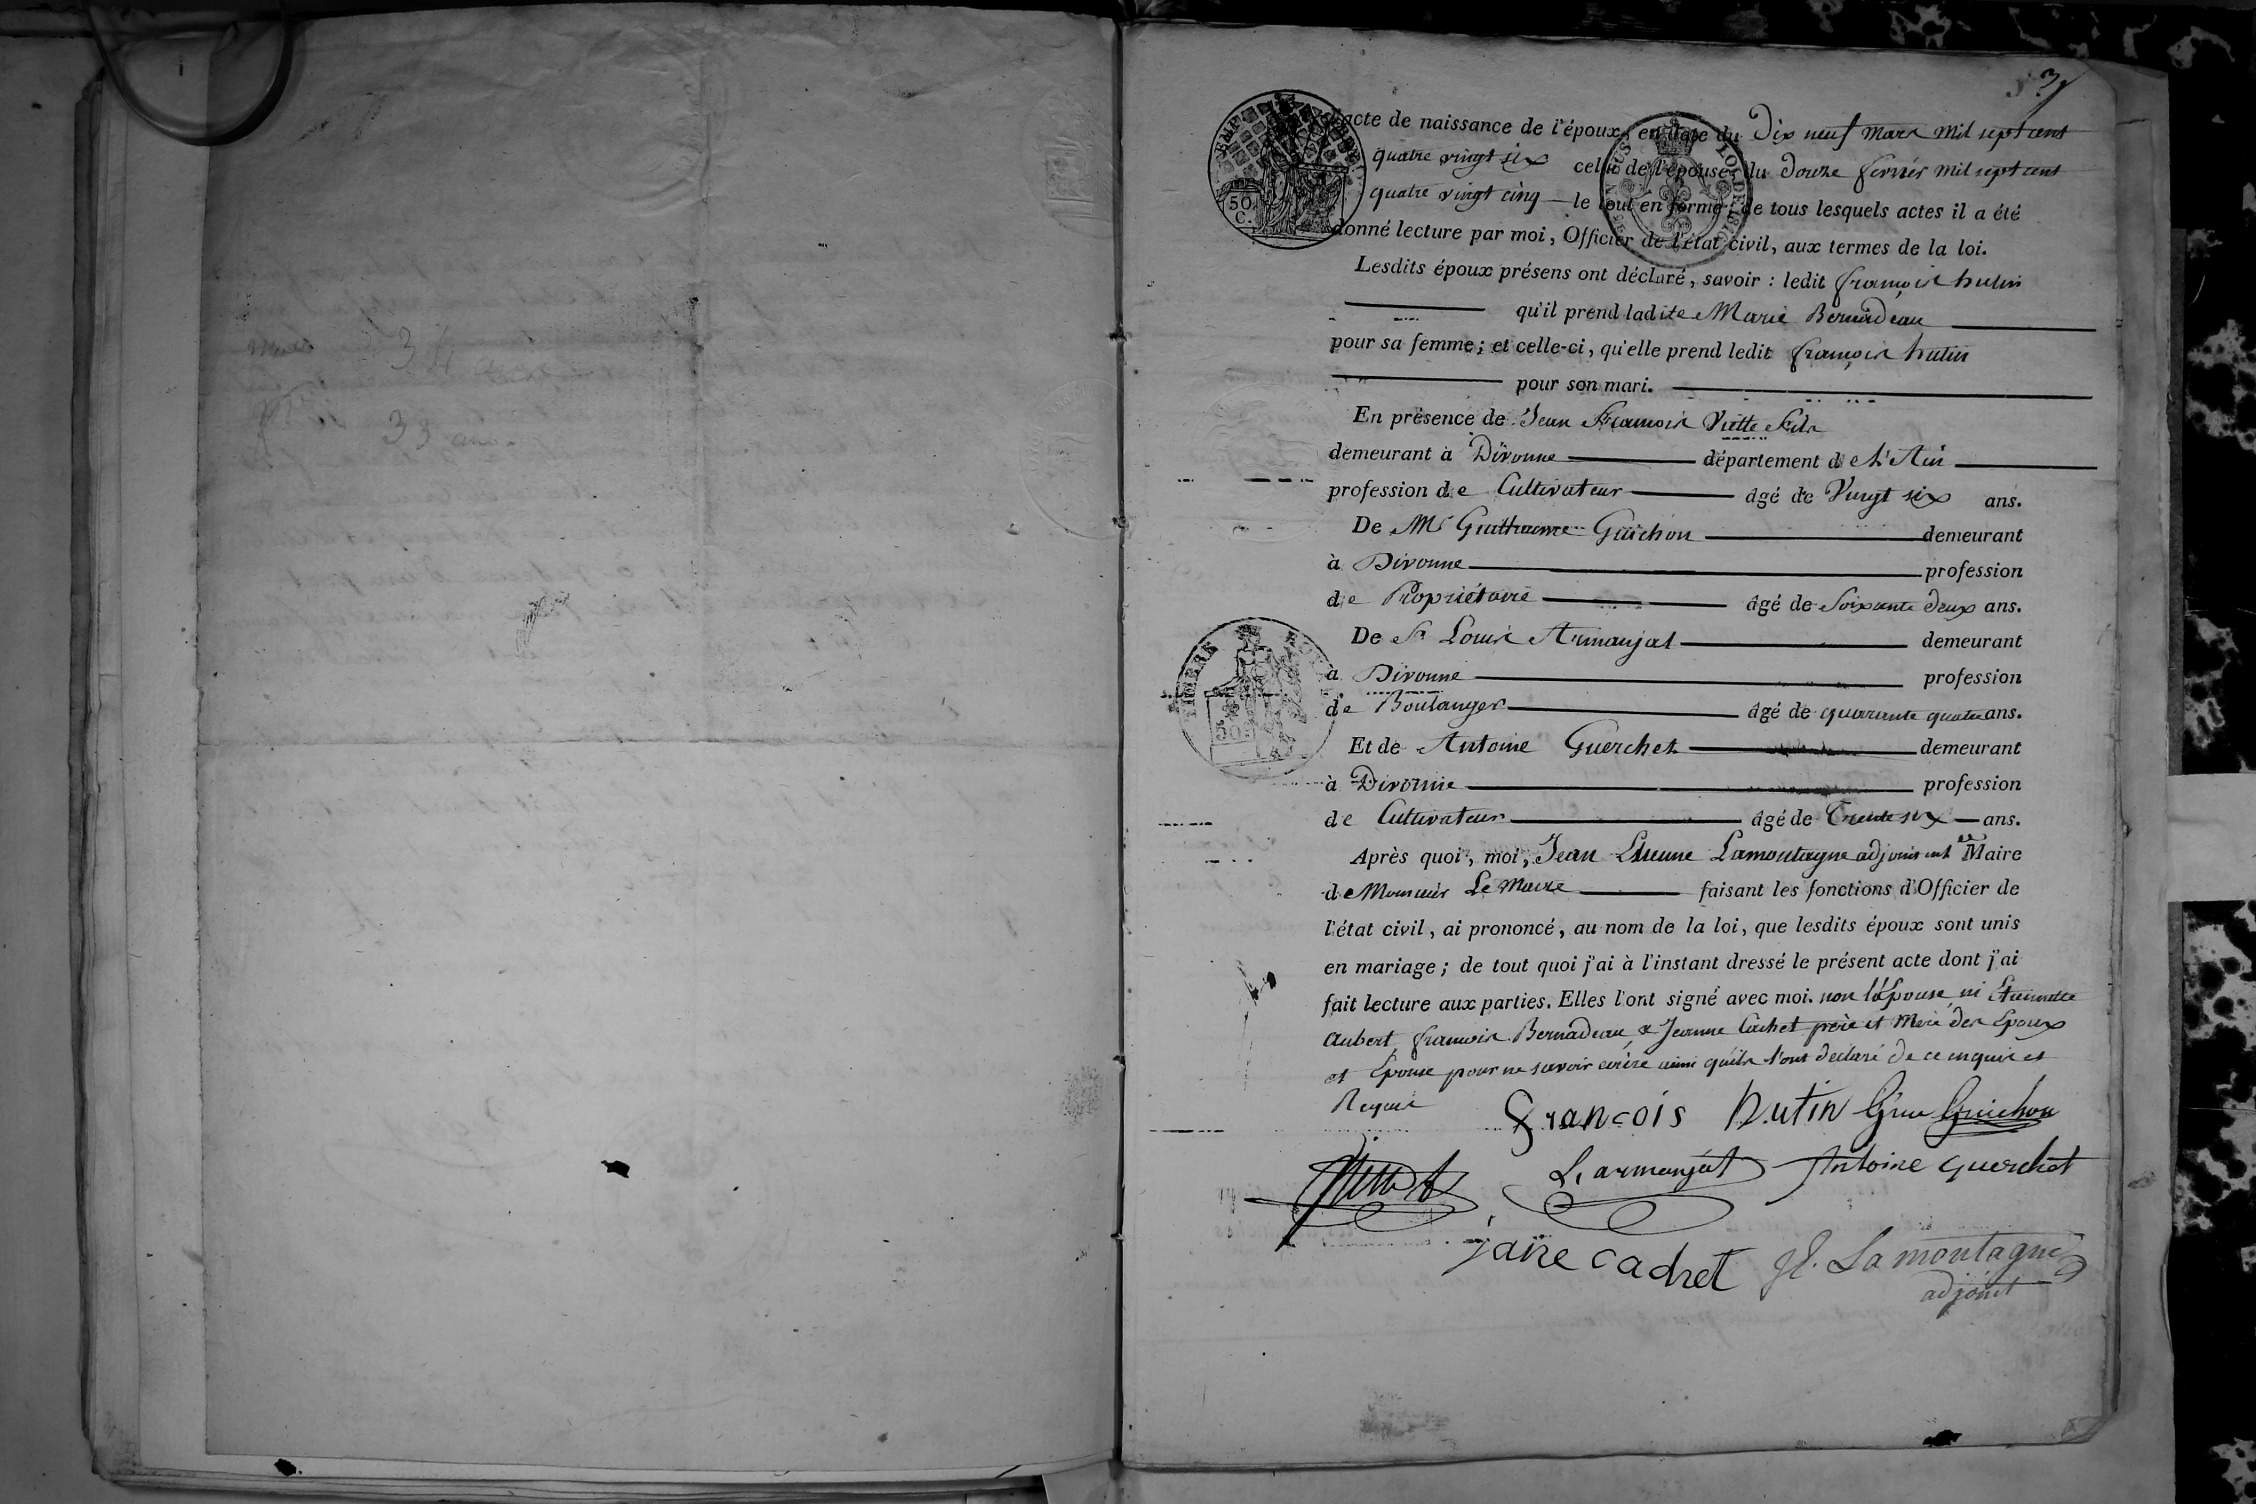 37
l'acte de naissance de l'époux, en date du Dix neuf mars mil sept cent
quatre vingt six celui de l'épouse, du Douze fevrier mil sept cent
quatre vingt cinq le tout en forme; de tous lesquels actes il a été
donné lecture par moi, Officier de l'état civil, aux termes de la loi.
Lesdits époux présens ont déclaré, savoir : ledit françois hutin
qu'il prend ladite Marie Bernadeau
pour sa femme; et celle-ci, qu'elle prend ledit françois hutin
pour son mari.
En présence de Jean François Viette fils
demeurant à Divonne département de L'Ain
profession de Cultivateur âgé de Vingt six ans.
De Mr Guillaume Guichon demeurant
à Divonne profession
de Propriétaire âgé de Soixante deux ans.
De Sr Louis Armanjat demeurant
à Divonne profession
de Boulanger âgé de quarante quatre ans.
Et de Antoine Guerchet demeurant
à Divonne profession
de Cultivateur âgé de Trente six ans.
Après quoi, moi, Jean Etienne Lamontagne adjoint Maire
de Monsieur Le Maire faisant les fonctions d'Officier de
l'état civil, ai prononcé, au nom de la loi, que lesdits époux sont unis
en mariage; de tout quoi j'ai à l'instant dressé le présent acte dont j'ai
fait lecture aux parties. Elles l'ont signé avec moi. non l'épouse, ni
aubert, françois Bernadeau, & Jeanne Cachet père et Mere des Epoux
et Epouse pour ne savoir ecrire ainsi qu'ils l'ont declaré de ce enquis et
Requis
françois hutin Gme Guichon
L. armanjat Antoine Guerchet
cachet JE. Lamontagne
adjoint
EMP.
50
C.
TIMBRE
50
LOI DE 1816
34 ans
33 ans